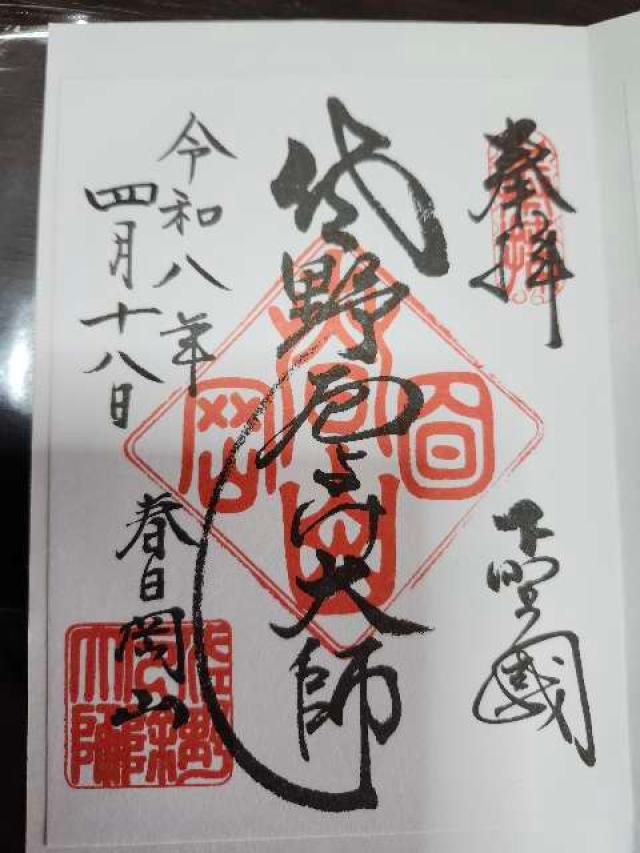 奉拝
下野國
佐野厄よけ大師
令和八年
四月十八日
春日岡山